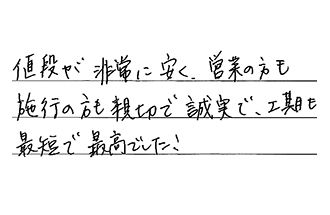 値段が非常に安く、営業の方も
施行の方も親切で誠実で、工期も
最短で最高でした！